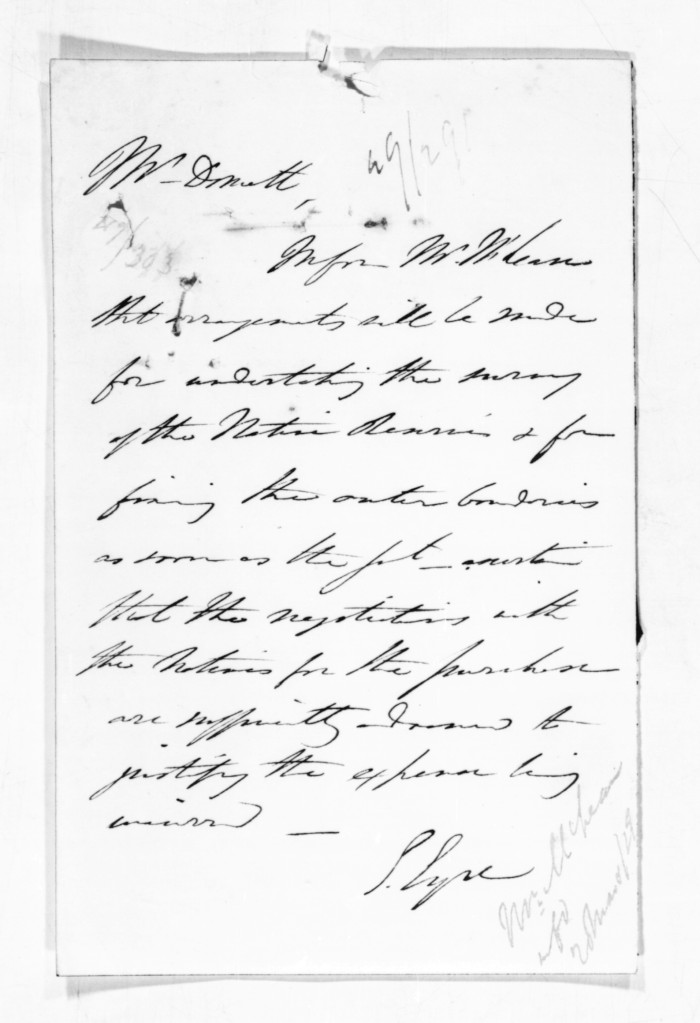 Mr Domett,
49/29
49/303
Inform Mr McLean
that arrangements will be made
for undertaking the survey
of the Native Reserves & for
fixing the outer boundaries
as soon as the Govt ascertain
that the negotiations with
the Natives for the purchase
are sufficiently advanced to
justify the expense being
incurred —
E. Eyre
Mr. McLean
28 March/49